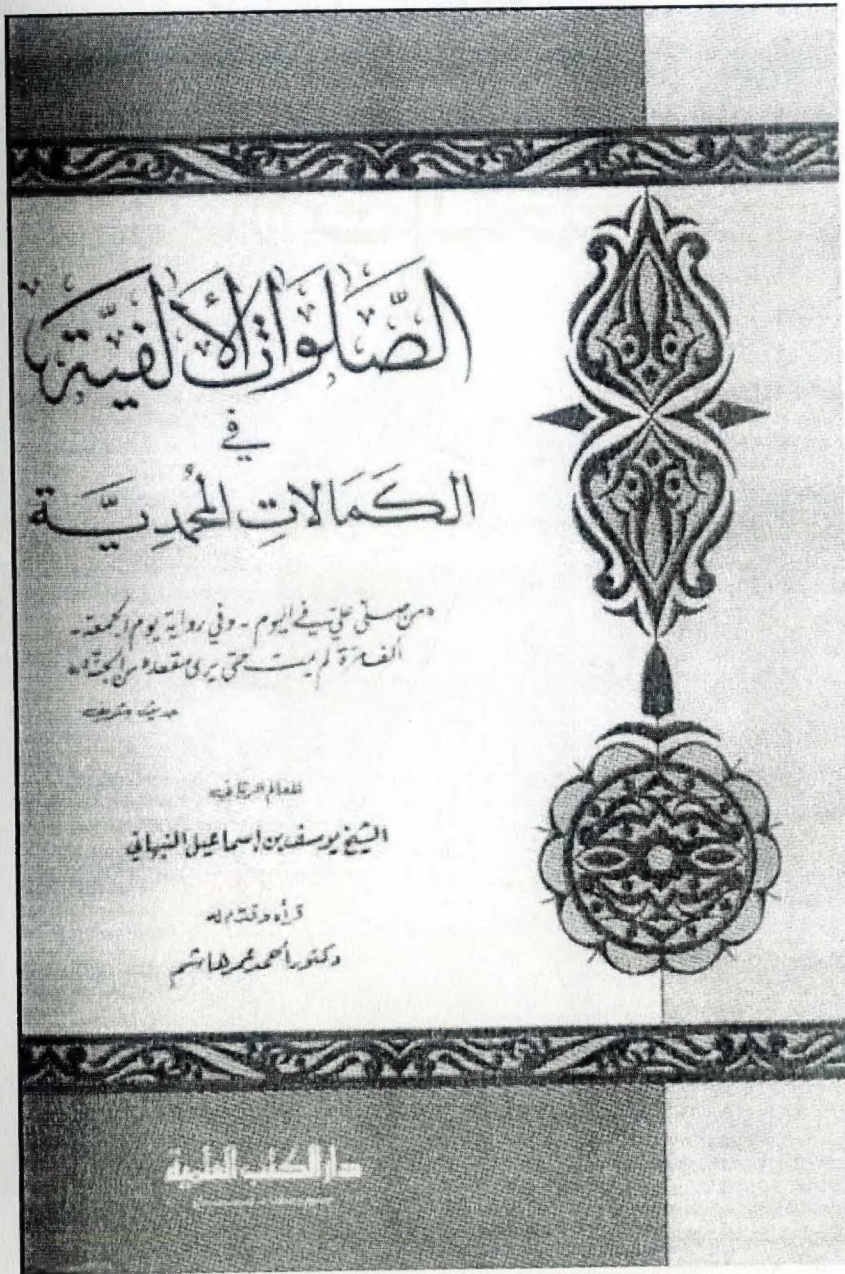 الصَّلَوَاتُ الأَلْفِيَّة
في
الكَمَالَاتِ المُحَمَّدِيَّة
«من صلى عليّ في اليوم - وفي رواية يوم الجمعة -
ألف مرة لم يمت حتى يرى مقعده من الجنة»
حديث شريف
للعالم الرباني
الشيخ يوسف بن إسماعيل النبهاني
قرأه وقدّم له
دكتور أحمد عمر هاشم
دار الكتب العلمية